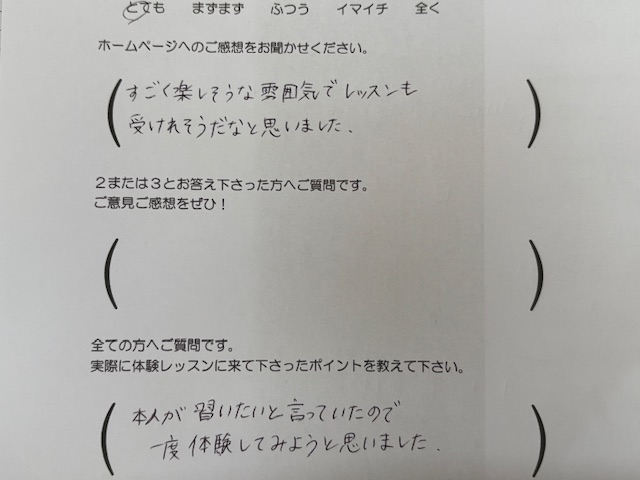 とても　まずまず　ふつう　イマイチ　全く
ホームページへのご感想をお聞かせください。
(すごく楽しそうな雰囲気でレッスンも
受けれそうだなと思いました.)
２または３とお答え下さった方へご質問です。
ご意見ご感想をぜひ！
(　　　)
全ての方へご質問です。
実際に体験レッスンに来て下さったポイントを教えて下さい。
(本人が習いたいと言っていたので
一度体験してみようと思いました.)